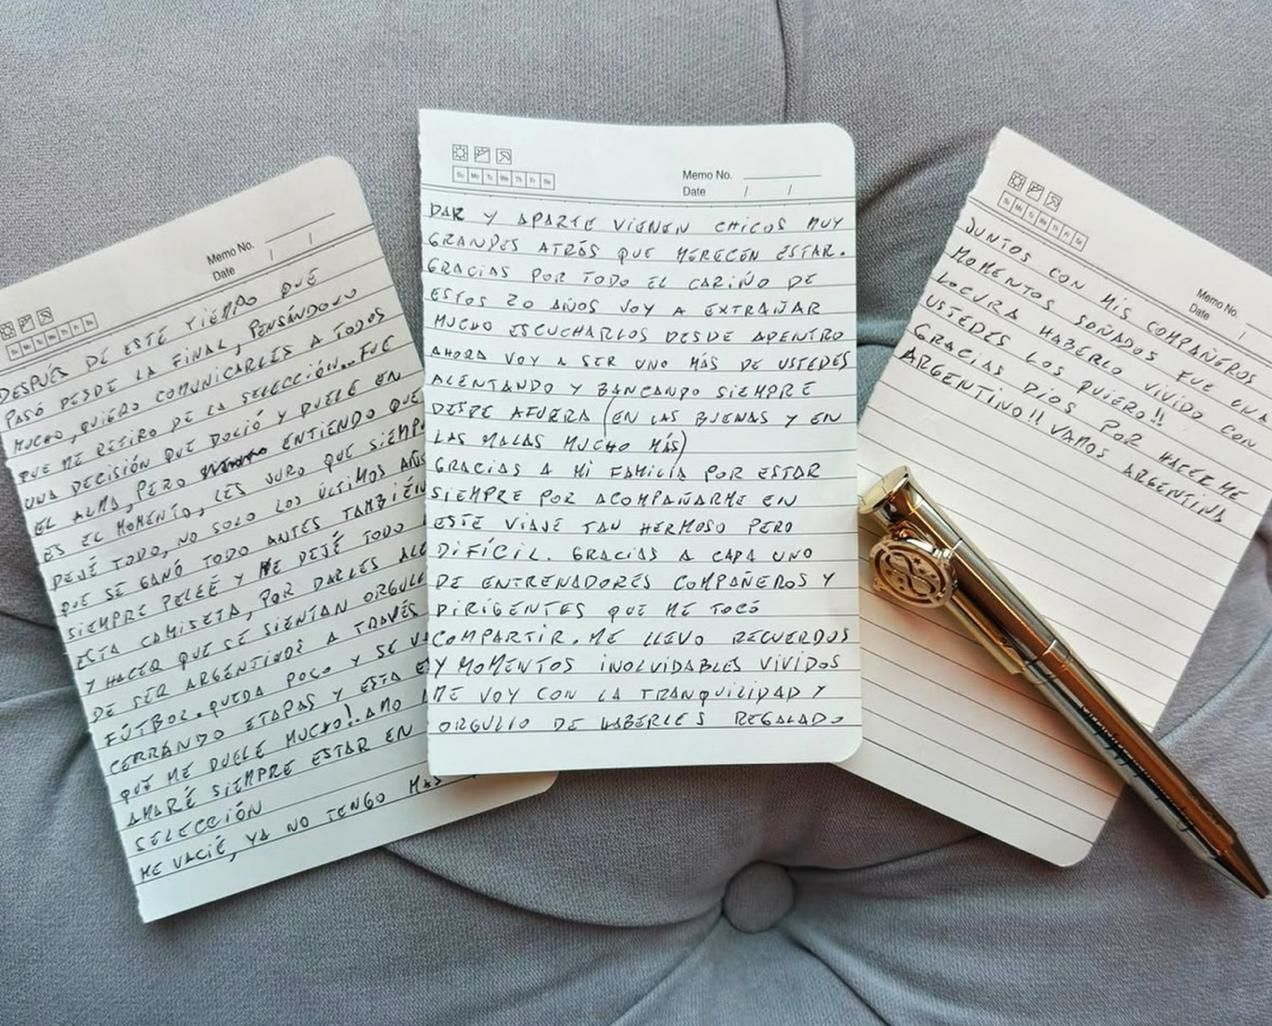 Memo No.
Date / /
DESPUÉS DE ESTE TIEMPO QUE
PASÓ DESDE LA FINAL, PENSÁNDOLO
MUCHO, QUIERO COMUNICARLES A TODOS
QUE ME RETIRO DE LA SELECCIÓN... FUE
UNA DECISIÓN QUE DOLIÓ Y DUELE EN
EL ALMA, PERO ENTIENDO QUE
ES EL MOMENTO, LES JURO QUE SIEMP
DEJÉ TODO, NO SOLO LOS ÚLTIMOS AÑOS
QUE SE GANÓ TODO ANTES TAMBIÉN
SIEMPRE PELEÉ Y ME DEJÉ TODO
ESTA CAMISETA, POR DARLES ALE
Y HACER QUE SE SIENTAN ORGULL
DE SER ARGENTINOS A TRAVÉS
FÚTBOL. QUEDA POCO Y SE VA
CERRANDO ETAPAS Y ESTA E
QUE ME DUELE MUCHO!. AMO
AMARÉ SIEMPRE ESTAR EN
SELECCIÓN
ME VACIÉ, YA NO TENGO MAS
Su Mo Tu We Th Fr Sa
Memo No.
Date / /
DAR Y APARTE VIENEN CHICOS MUY
GRANDES ATRÁS QUE MERECEN ESTAR.
GRACIAS POR TODO EL CARIÑO DE
ESTOS 20 AÑOS VOY A EXTRAÑAR
MUCHO ESCUCHARLOS DESDE ADENTRO
AHORA VOY A SER UNO MÁS DE USTEDES
ALENTANDO Y BANCANDO SIEMPRE
DESDE AFUERA (EN LAS BUENAS Y EN
LAS MALAS MUCHO MÁS)
GRACIAS A MI FAMILIA POR ESTAR
SIEMPRE POR ACOMPAÑARME EN
ESTE VIAJE TAN HERMOSO PERO
DIFÍCIL. GRACIAS A CADA UNO
DE ENTRENADORES COMPAÑEROS Y
DIRIGENTES QUE ME TOCÓ
COMPARTIR. ME LLEVO RECUERDOS
Y MOMENTOS INOLVIDABLES VIVIDOS
ME VOY CON LA TRANQUILIDAD Y
ORGULLO DE HABERLES REGALADO
Memo No.
Date /
JUNTOS CON MIS COMPAÑEROS
MOMENTOS SOÑADOS FUE UNA
LOCURA HABERLO VIVIDO CON
USTEDES LOS QUIERO!!
GRACIAS DIOS POR HACERME
ARGENTINO!! VAMOS ARGENTINA